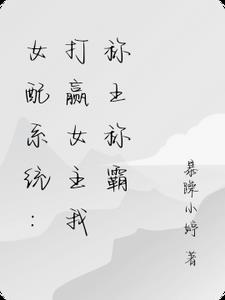 女配系统：
打赢女主我
称王称霸
暴躁小婷 著